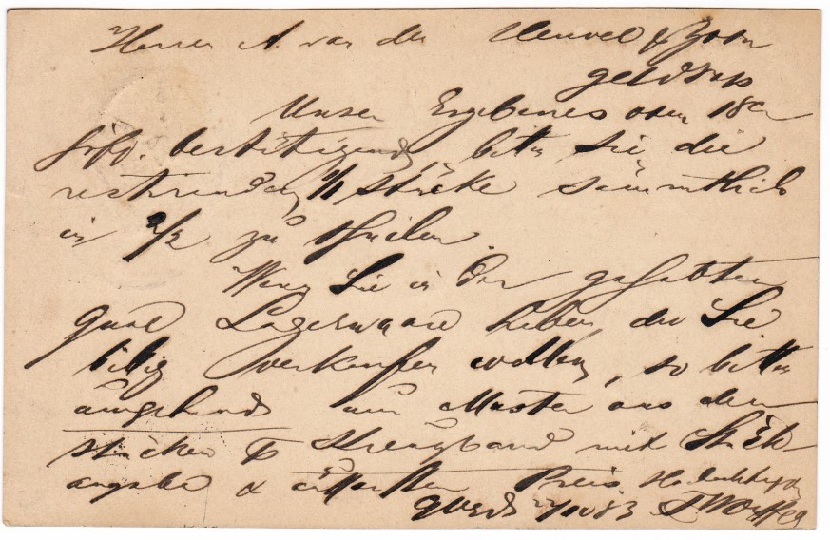 Herren A. van den Heuvel & Zoon
Geldrop
Unser Ergebenes vom 18en
bestätigend, bitte Sie die
restirenden 1/1 Stücke sämmtlich
in 2/2 zu theilen.
Wenn Sie in der gehabten
Qual Lagerwaare haben, die Sie
billig verkaufen wollen, so bitte
umgehend um Muster aus den
Stücken Kreuzband mit Stück-
angabe & äußersten Preis. Hochachtungsv
83